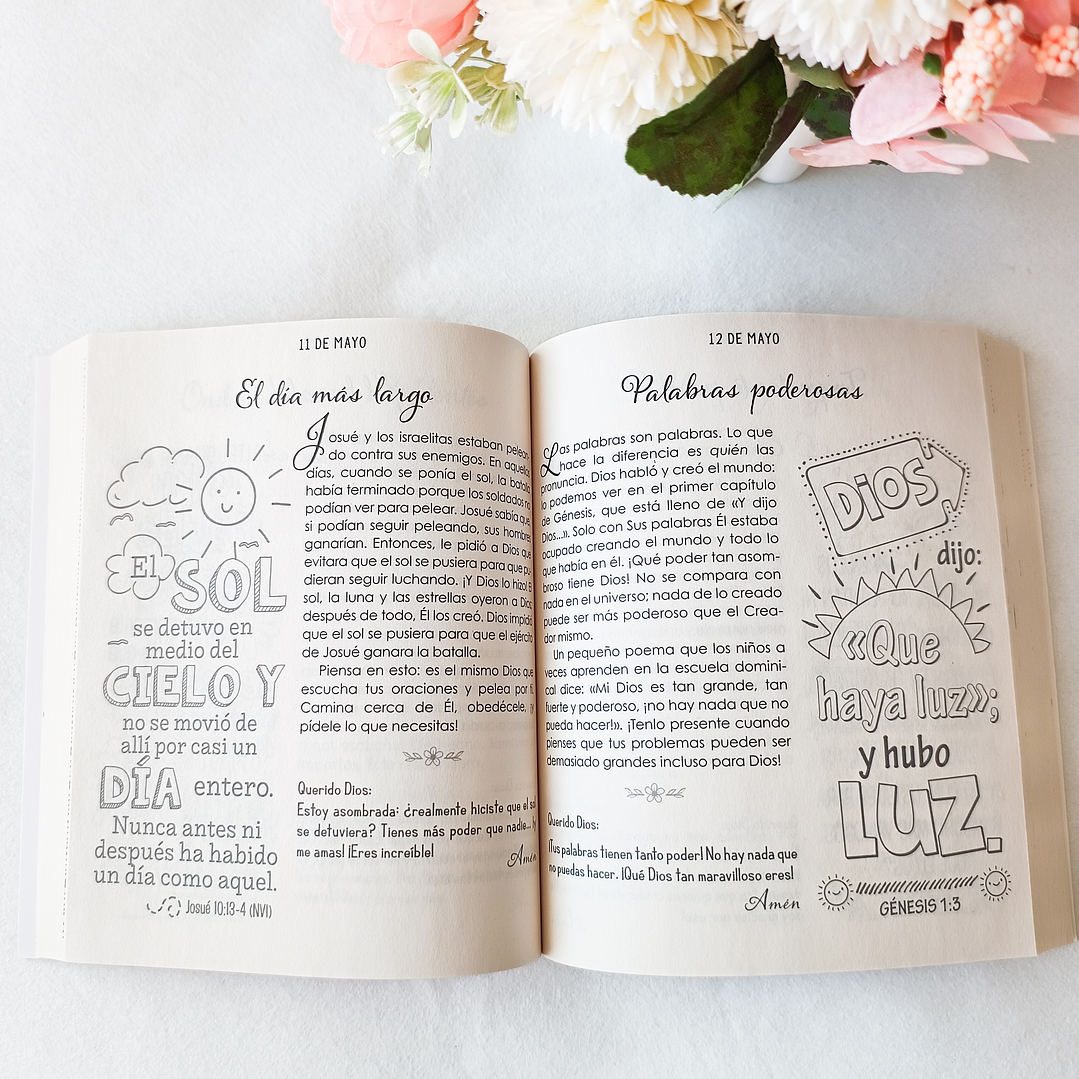 11 DE MAYO
El día más largo
El
SOL
se detuvo en
medio del
CIELO Y
no se movió de
allí por casi un
DÍA entero.
Nunca antes ni
después ha habido
un día como aquel.
Josué 10:13-4 (NVI)
Josué y los israelitas estaban pelean-
do contra sus enemigos. En aquellos
días, cuando se ponía el sol, la batalla
había terminado porque los soldados no
podían ver para pelear. Josué sabía que
si podían seguir peleando, sus hombres
ganarían. Entonces, le pidió a Dios que
evitara que el sol se pusiera para que pu-
dieran seguir luchando. ¡Y Dios lo hizo! El
sol, la luna y las estrellas oyeron a Dios
después de todo, Él los creó. Dios impidió
que el sol se pusiera para que el ejército
de Josué ganara la batalla.
Piensa en esto: es el mismo Dios que
escucha tus oraciones y pelea por ti.
Camina cerca de Él, obedécele, y
pídele lo que necesitas!
Querido Dios:
Estoy asombrada: ¿realmente hiciste que el sol
se detuviera? Tienes más poder que nadie...
me amas! ¡Eres increíble!
Amén
12 DE MAYO
Palabras poderosas
Las palabras son palabras. Lo que
hace la diferencia es quién las
pronuncia. Dios habló y creó el mundo:
lo podemos ver en el primer capítulo
de Génesis, que está lleno de «Y dijo
Dios...». Solo con Sus palabras Él estaba
ocupado creando el mundo y todo lo
que había en él. ¡Qué poder tan asom-
broso tiene Dios! No se compara con
nada en el universo; nada de lo creado
puede ser más poderoso que el Crea-
dor mismo.
Un pequeño poema que los niños a
veces aprenden en la escuela domini-
cal dice: «Mi Dios es tan grande, tan
fuerte y poderoso, ¡no hay nada que no
pueda hacer!». ¡Tenlo presente cuando
pienses que tus problemas pueden ser
demasiado grandes incluso para Dios!
Querido Dios:
¡Tus palabras tienen tanto poder! No hay nada que
no puedas hacer. ¡Qué Dios tan maravilloso eres!
Amén
DiOS
dijo:
«Que
haya luz»;
y hubo
LUZ.
GÉNESIS 1:3